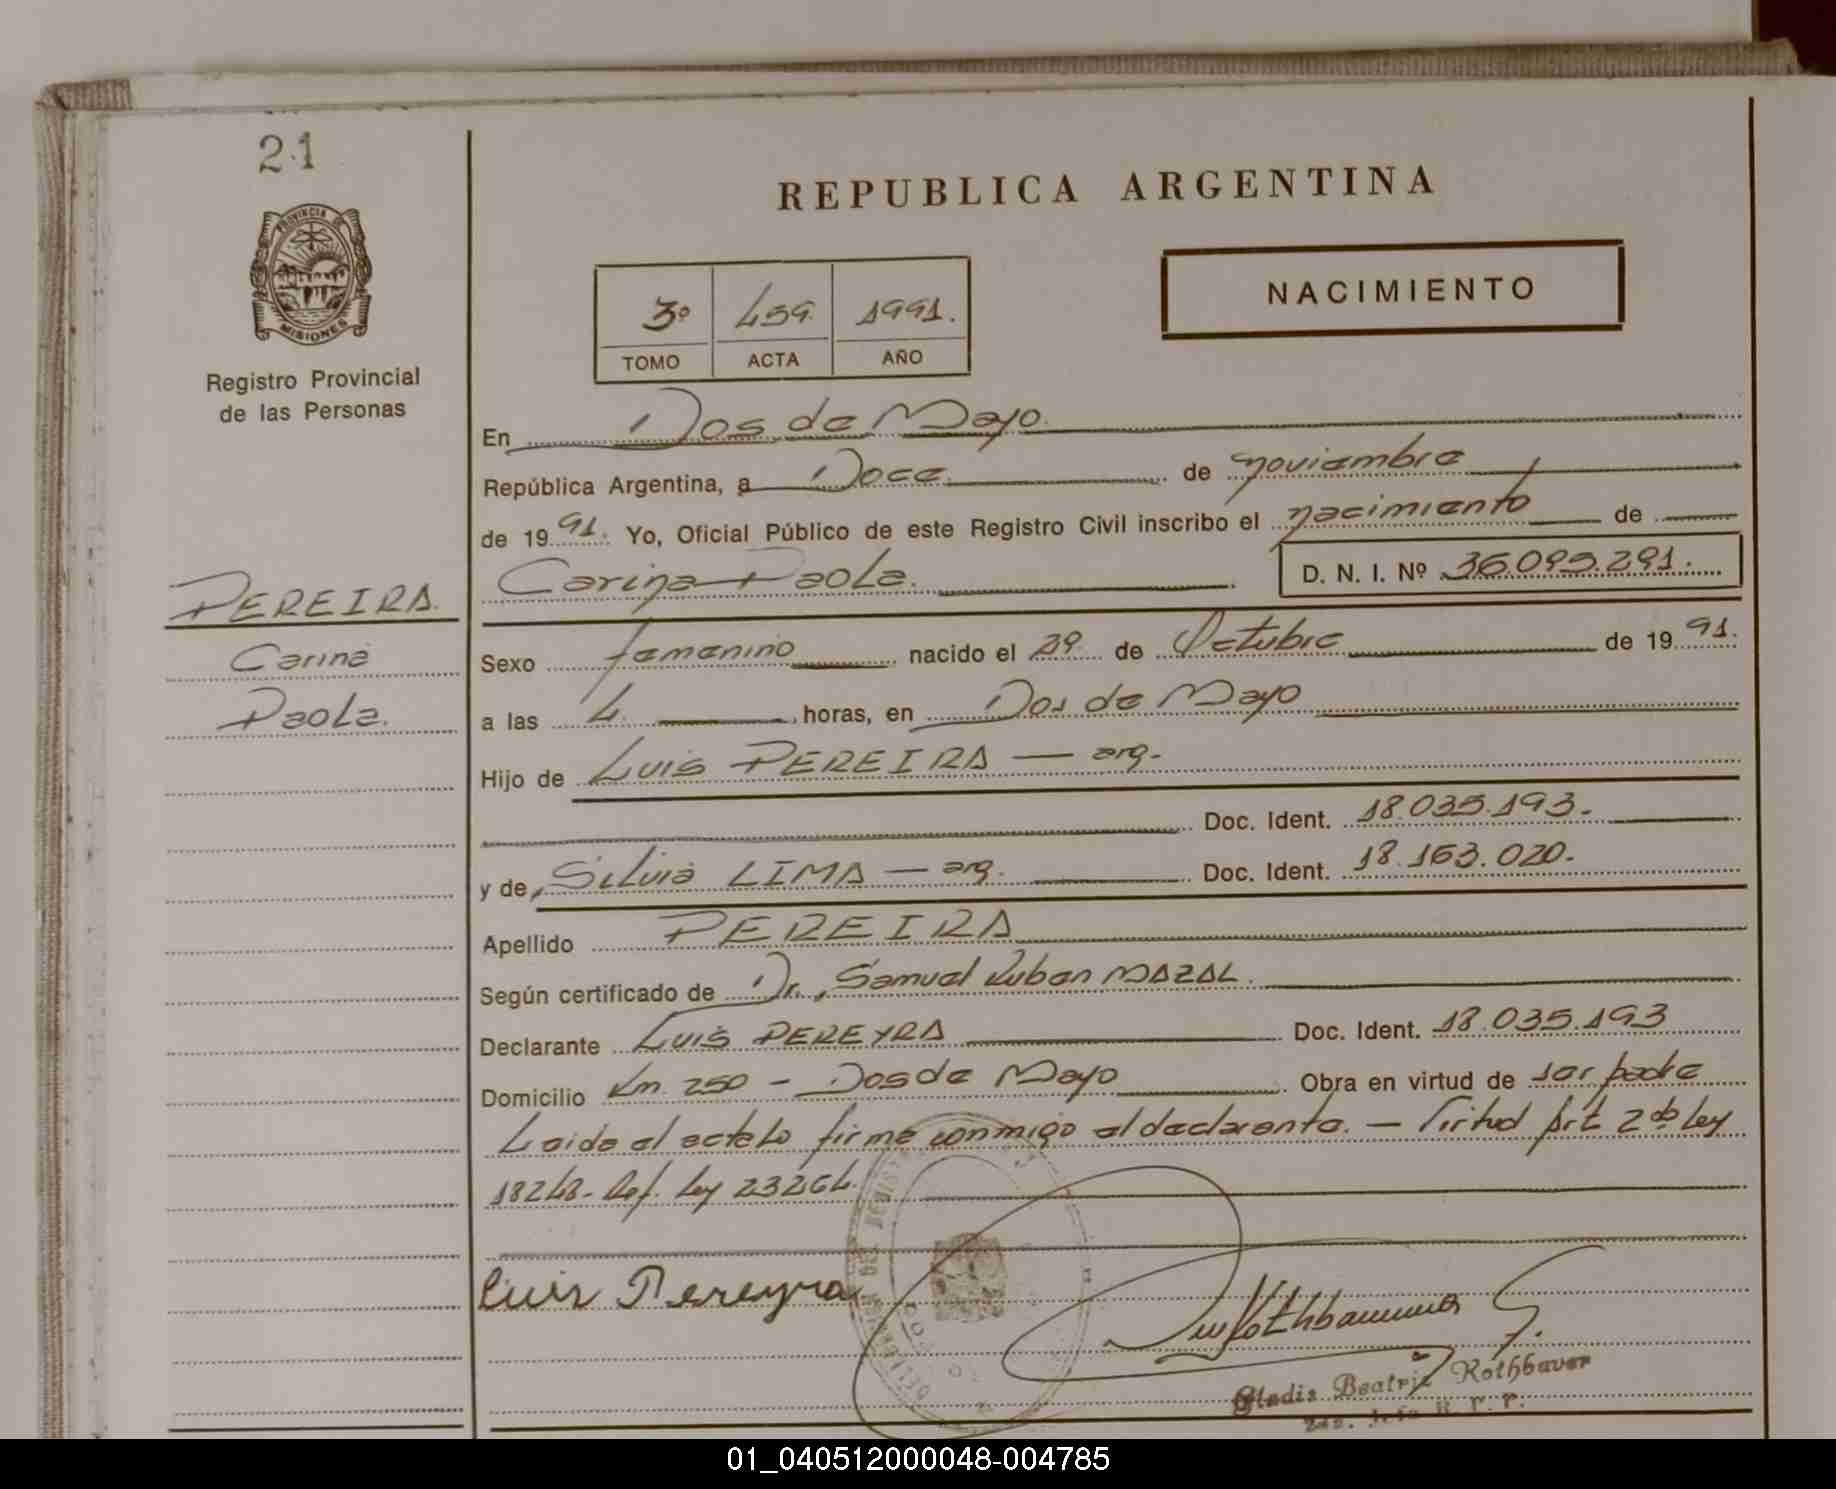 21
PROVINCIA DE
MISIONES
Registro Provincial
de las Personas
PEREIRA.
Carina
Paola.
REPUBLICA ARGENTINA
3º 459. 1991.
TOMO ACTA AÑO
NACIMIENTO
En Dos de Mayo.
República Argentina, a Doce de noviembre
de 1991. Yo, Oficial Público de este Registro Civil inscribo el nacimiento de
Carina Paola. D. N. I. Nº 36.099.291.
Sexo femenino nacido el 29 de Octubre de 1991.
a las 4 horas, en Dos de Mayo
Hijo de Luis PEREIRA — arg.
Doc. Ident. 18.035.193.
y de, Silvia LIMA — arg. Doc. Ident. 18.163.020.
Apellido PEREIRA
Según certificado de Dr. Samuel Ruben MAZAL.
Declarante Luis PEREYRA Doc. Ident. 18.035.193
Domicilio Km. 250 - Dos de Mayo Obra en virtud de ser padre
Leida el acta lo firma conmigo el declarante. — Virtud Art 2do Ley
18248- Ref. Ley 23264.
Luis Pereyra
Rothbauer G.
Gladis Beatriz Rothbauer
R. P. P.
01_040512000048-004785